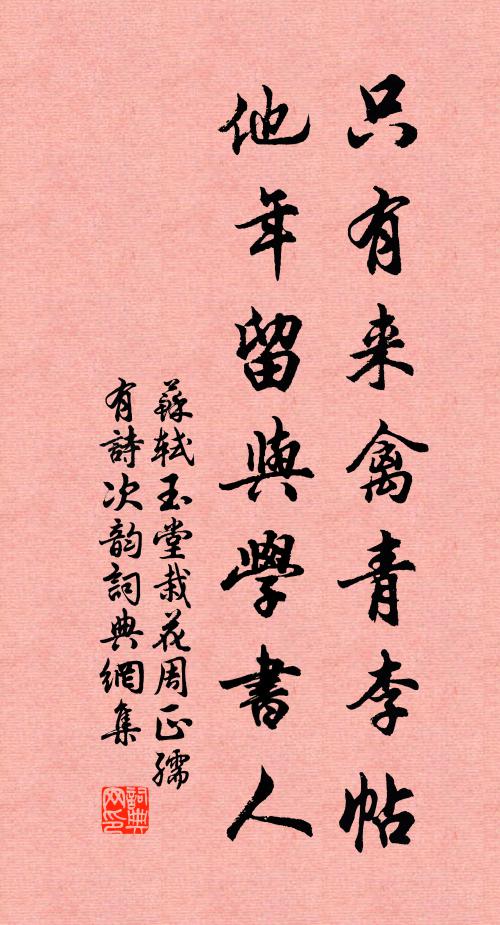 只有来禽青李帖
他年留與學書人
蘇軾玉堂栽花周正孺
有詩次韵詞典網集
詞典
网印